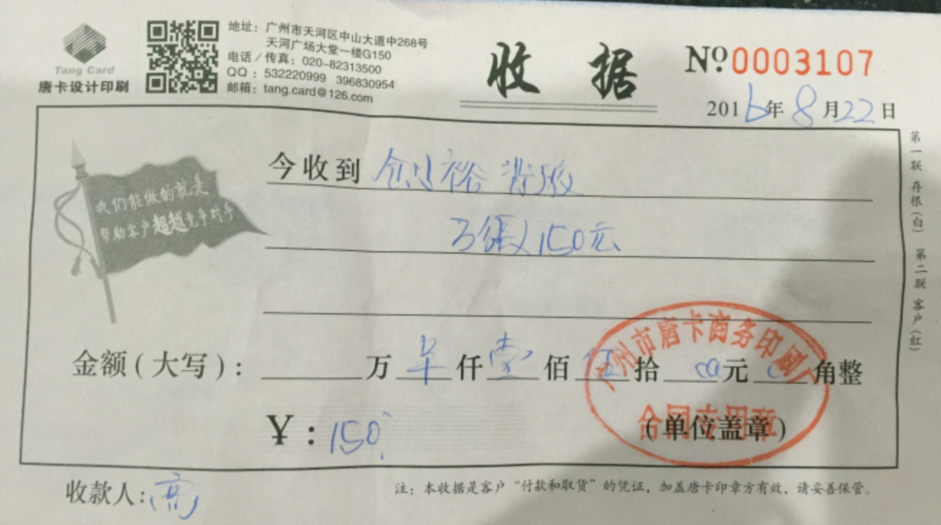 Tang Card
唐卡设计印刷
地址：广州市天河区中山大道中268号
天河广场大堂一楼G150
电话/传真：020-82313500
QQ：532220999 396830954
邮箱：tang.card@126.com
收据
Nº0003107
2016年8月22日
我们能做的就是
帮助客户超越竞争对手
今收到
150元
金额(大写)： 万 仟 壹 佰 伍 拾 元 角整
¥：150
广州市唐卡商务印刷厂
合同专用章
(单位盖章)
收款人：高
注：本收据是客户“付款和取货”的凭证，加盖唐卡印章方有效，请妥善保管。
第一联 存根(白) 第二联 客户(红)